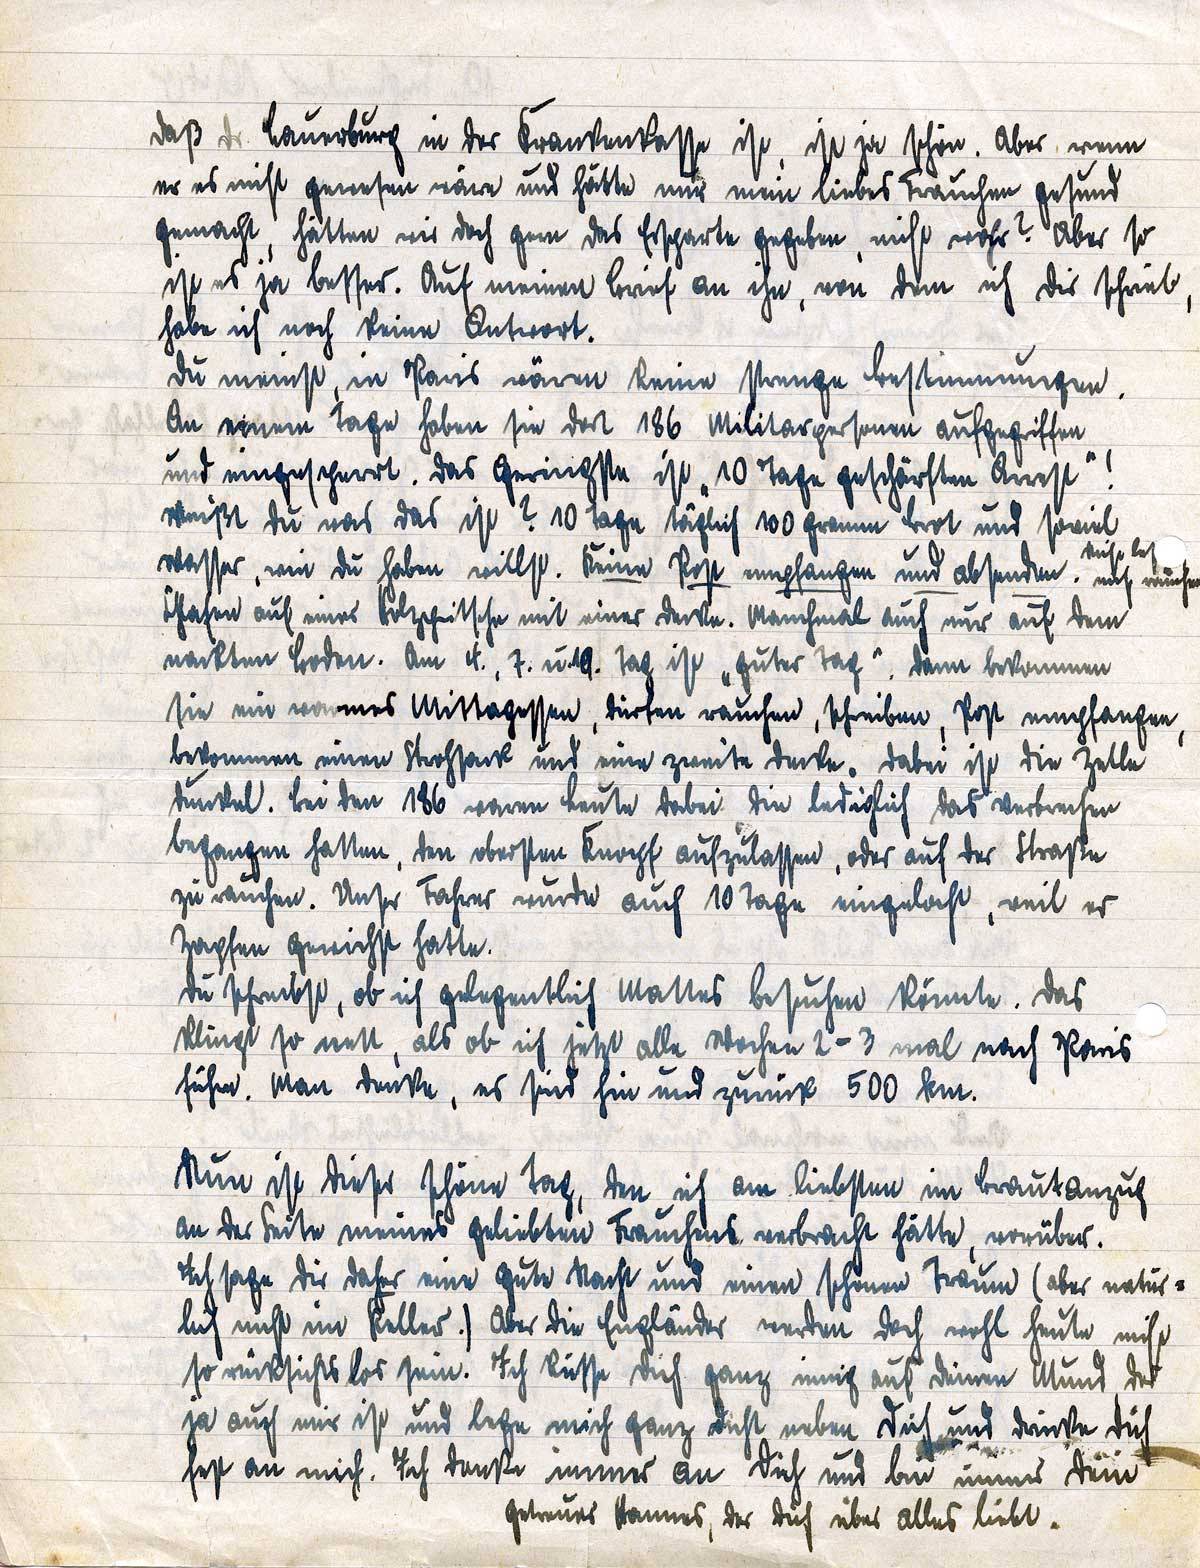 Daß Dr. Lauerburg in der Krankenkasse ist, ist ja schön. Aber wenn
er es nicht gewesen wäre und hätte mir mein liebes Frauchen gesund
gemacht, hätten wir doch gern das Ersparte gegeben, nicht wahr? Aber so
ist es ja besser. Auf meinen Brief an ihn, von dem ich Dir schrieb,
habe ich noch keine Antwort.
Du meinst, in Paris wären keine strenge Bestimmungen.
An einem Tage haben sie dort 186 Militärpersonen aufgegriffen
und eingesperrt. Das Geringste ist „10 Tage geschärften Arrest"!
Weißt Du was das ist? 10 Tage täglich 100 Gramm Brot und soviel
Wasser, wie Du haben willst. Keine Post empfangen und absenden. nicht
rauchen
Schlafen auf einer Holzpritsche mit einer Decke. Manchmal auch nur auf dem
nackten Boden. Am 4., 7. u. 10. Tag ist „guter Tag". Dann bekommen
sie ein warmes Mittagessen, dürfen rauchen, schreiben, Post empfangen,
bekommen einen Strohsack und eine zweite Decke. Dabei ist die Zelle
dunkel. Bei den 186 waren Leute dabei die lediglich das Verbrechen
begangen hatten, den obersten Knopf aufzulassen, oder auf der Straße
zu rauchen. Unser Fahrer wurde auch 10 Tage eingelocht, weil er
Zapfen gewichst hatte.
Du schreibst, ob ich gelegentlich Mattes besuchen könnte. Das
klingt so nett, als ob ich jetzt alle Wochen 2-3 mal nach Paris
führe. Man denke, es sind hin und zurück 500 km.
Nun ist dieser schöne Tag, den ich am liebsten im Brautanzug
an der Seite meines geliebten Frauchens verbracht hätte, vorüber.
Ich sage Dir daher eine gute Nacht und einen schönen Traum (aber natür=
lich nicht im Keller.) Aber die Engländer werden doch wohl heute nicht
so rücksichtslos sein. Ich küsse Dich ganz innig auf Deinen Mund, der
ja auch mir ist und lege mich ganz dicht neben Dich und drücke Dich
fest an mich. Ich denke immer an Dich und bin immer Dein
getreues Hannes, der Dich über alles liebt.